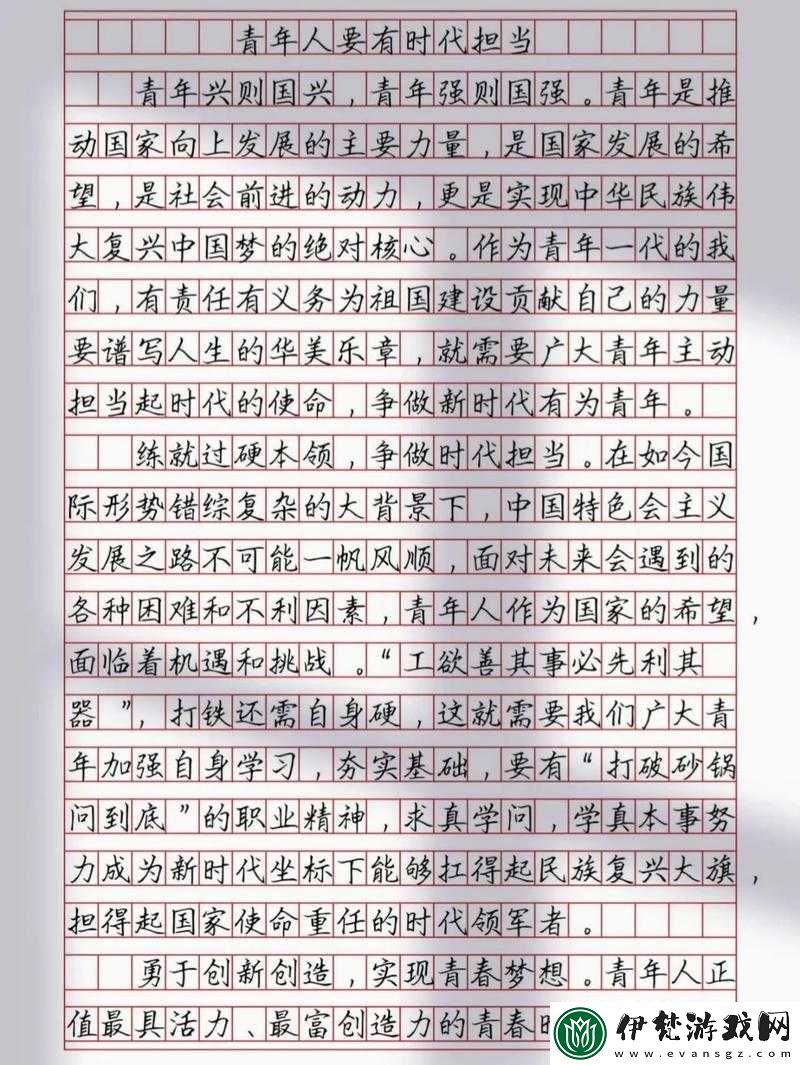 青年人要有时代担当
青年兴则国兴，青年强则国强。青年是推
动国家向上发展的主要力量，是国家发展的希
望，是社会前进的动力，更是实现中华民族伟
大复兴中国梦的绝对核心。作为青年一代的我
们，有责任有义务为祖国建设贡献自己的力量
要谱写人生的华美乐章，就需要广大青年主动
担当起时代的使命，争做新时代有为青年。
练就过硬本领，争做时代担当。在如今国
际形势错综复杂的大背景下，中国特色会主义
发展之路不可能一帆风顺，面对未来会遇到的
各种困难和不利因素，青年人作为国家的希望，
面临着机遇和挑战。“工欲善其事必先利其
器”，打铁还需自身硬，这就需要我们广大青
年加强自身学习，夯实基础，要有“打破砂锅
问到底”的职业精神，求真学问，学真本事努
力成为新时代坐标下能够扛得起民族复兴大旗，
担得起国家使命重任的时代领军者。
勇于创新创造，实现青春梦想。青年人正
值最具活力、最富创造力的青春
伊梵游戏网
www.evansgz.com